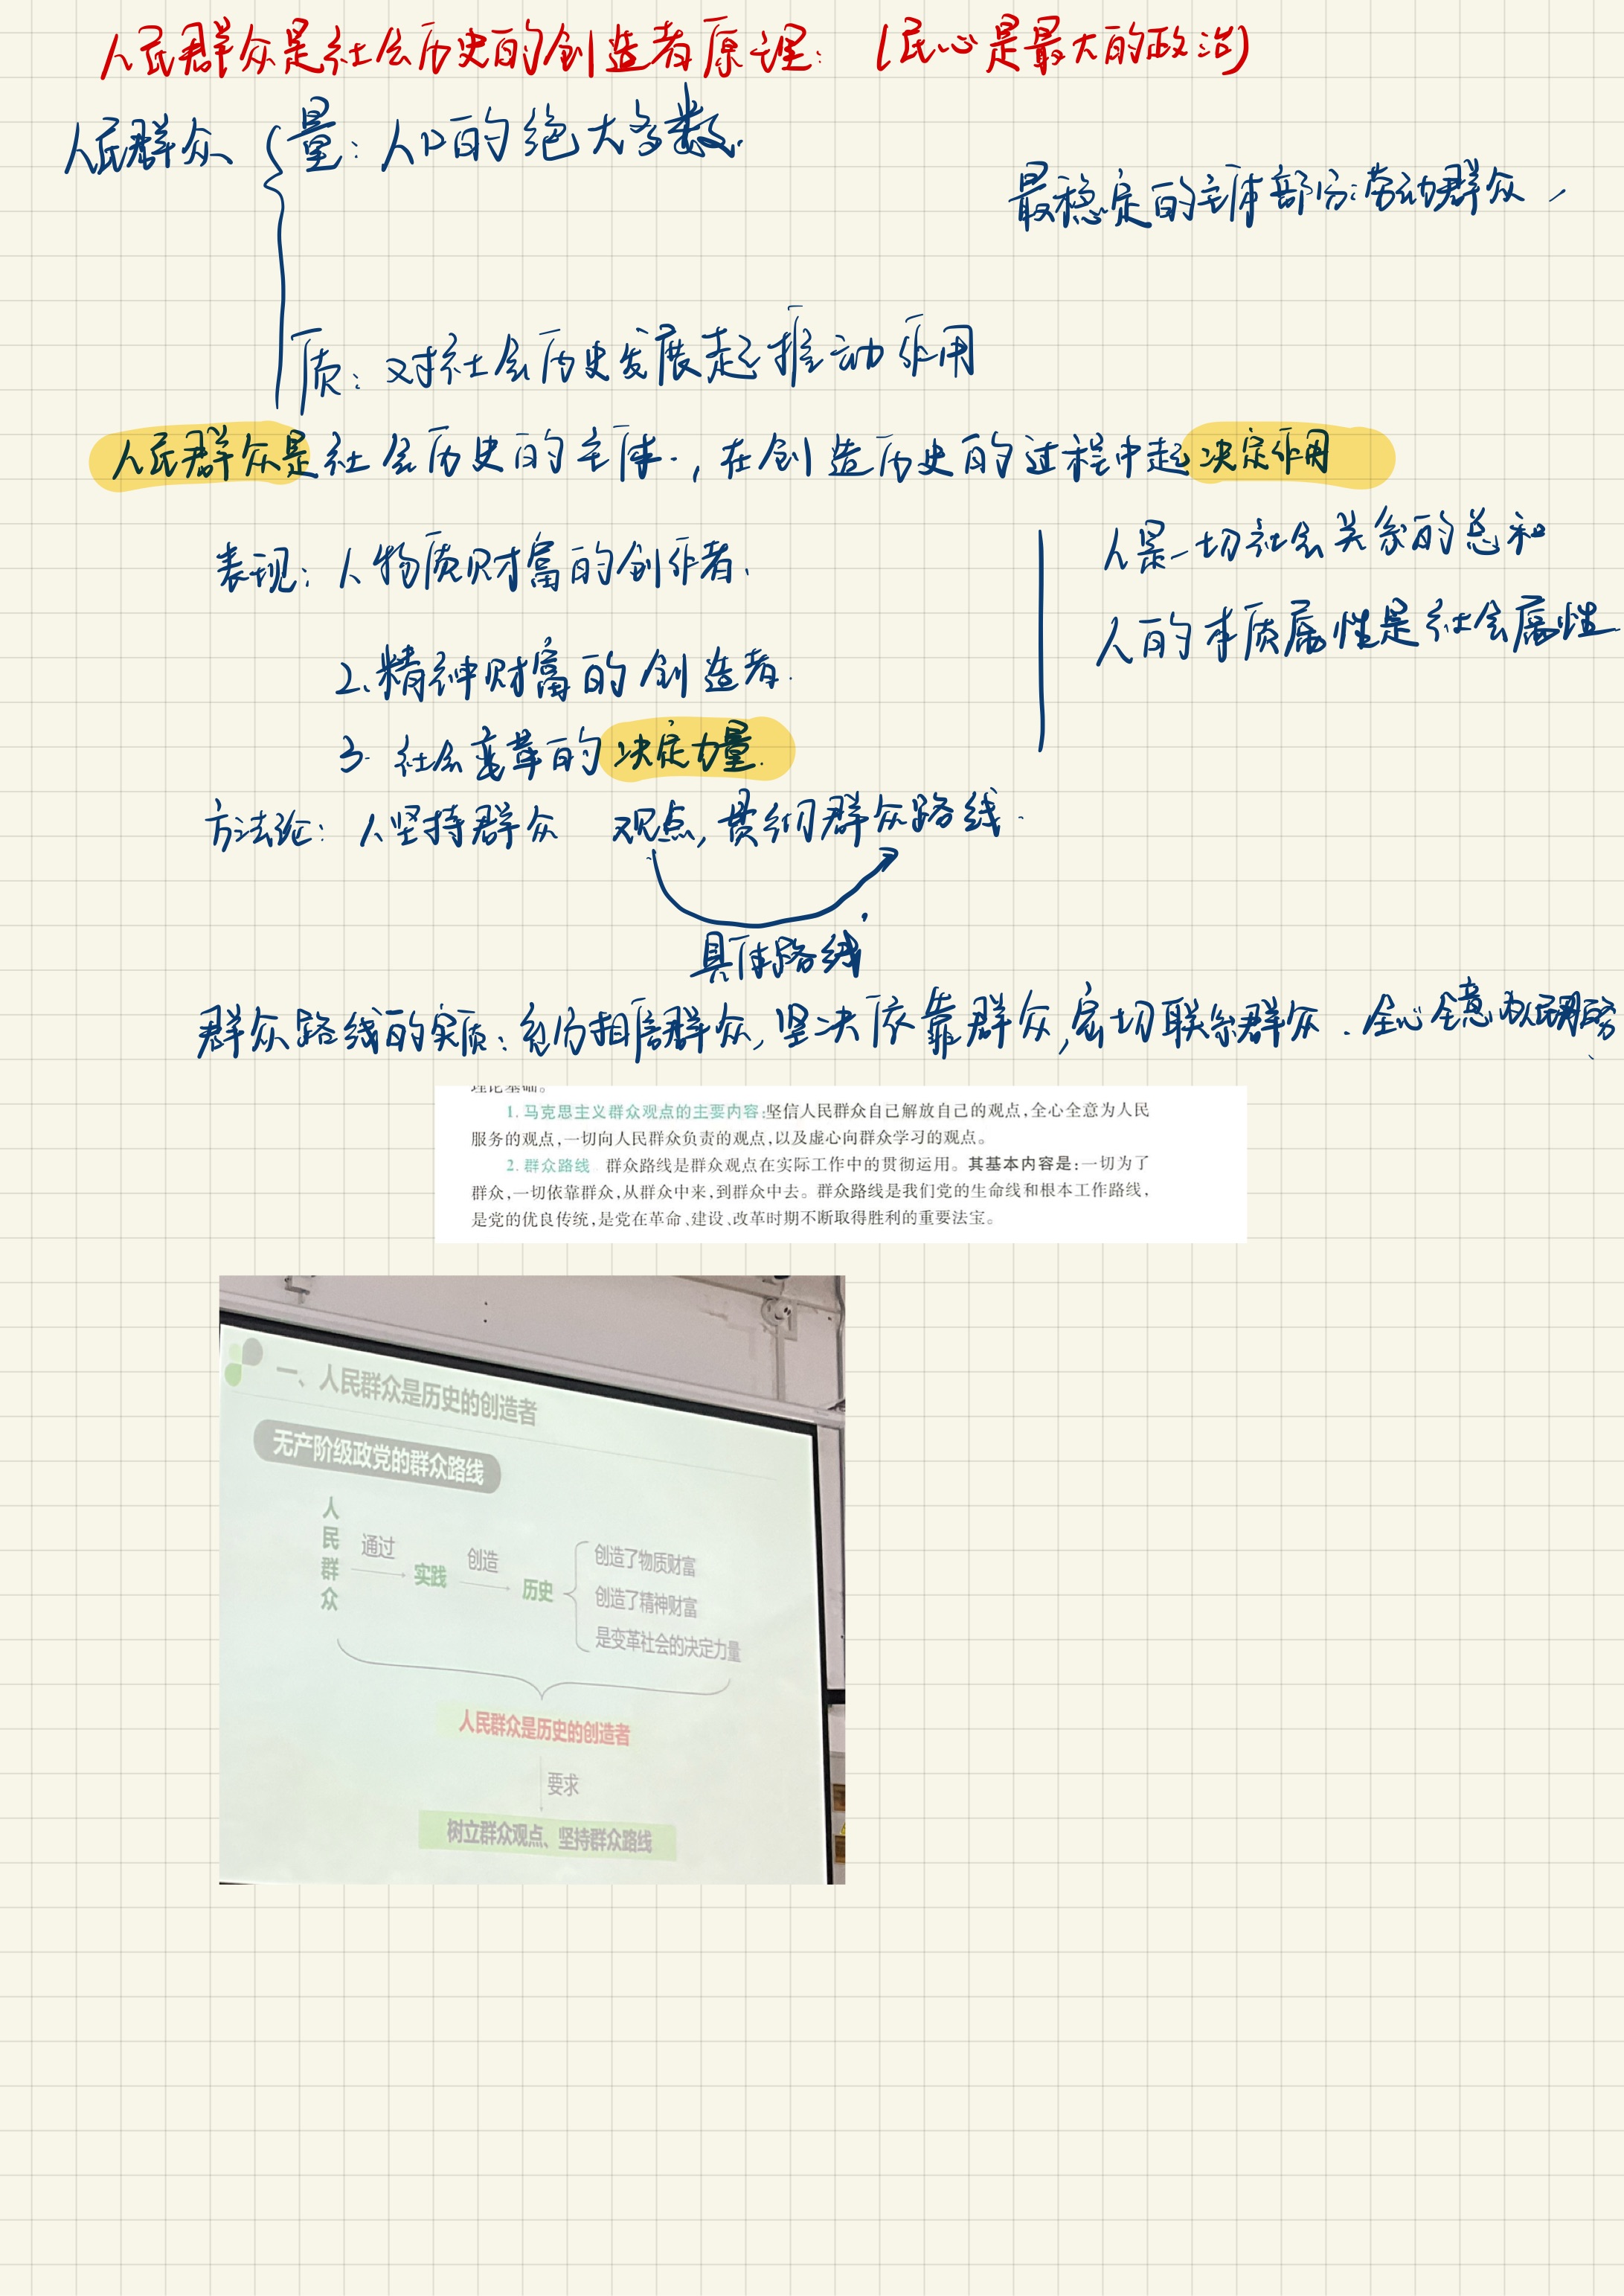 人民群众是社会历史的创造者原理：（民心是最大的政治）
人民群众
量：人口的绝大多数.
最稳定的主体部分：劳动群众，
质：对社会历史发展起推动作用
人民群众是社会历史的主体.，在创造历史的过程中起决定作用
表现：1、物质财富的创作者、
2、精神财富的创造者.
3. 社会变革的决定力量.
人是一切社会关系的总和
人的本质属性是社会属性
方法论：1、坚持群众 观点，贯彻群众路线.
具体路线
群众路线的实质：充分相信群众，坚决依靠群众，密切联系群众．全心全意为人民服务、
理论基础。
1. 马克思主义群众观点的主要内容：坚信人民群众自己解放自己的观点，全心全意为人民
服务的观点，一切向人民群众负责的观点，以及虚心向群众学习的观点。
2. 群众路线 群众路线是群众观点在实际工作中的贯彻运用。其基本内容是：一切为了
群众，一切依靠群众，从群众中来，到群众中去。群众路线是我们党的生命线和根本工作路线，
是党的优良传统，是党在革命、建设、改革时期不断取得胜利的重要法宝。
一、人民群众是历史的创造者
无产阶级政党的群众路线
人民群众
通过
实践
创造
历史
创造了物质财富
创造了精神财富
是变革社会的决定力量
人民群众是历史的创造者
要求
树立群众观点、坚持群众路线